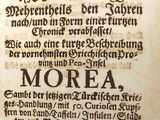 Mehrentheils den Jahren
nach / und in Form einer kurtzen
Chronick verabfasset /
Wie auch eine kurtze Beschreibung
der vornehmsten Griechischen Pro-
vintz und Pen-Insel
MOREA,
Sambt der jetzigen Türckischen Krie-
ges-Handlung / mit 50. Curiösen Kupf-
fern von Land-Taffeln / Insulen / Städ-